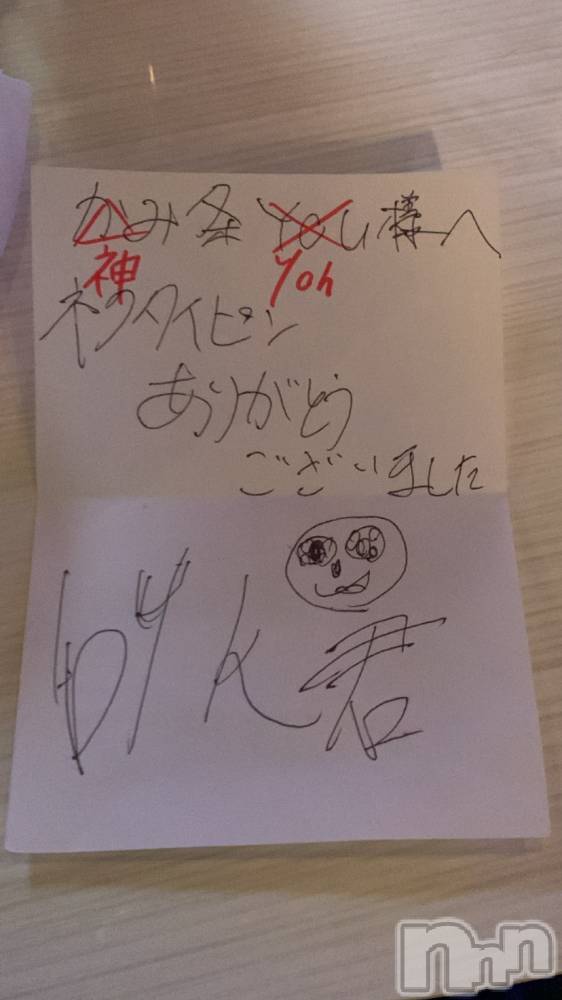 かみ条 You 様へ
神 Yoh
ネクタイピン
ありがとう
ございました
けん君
nnn